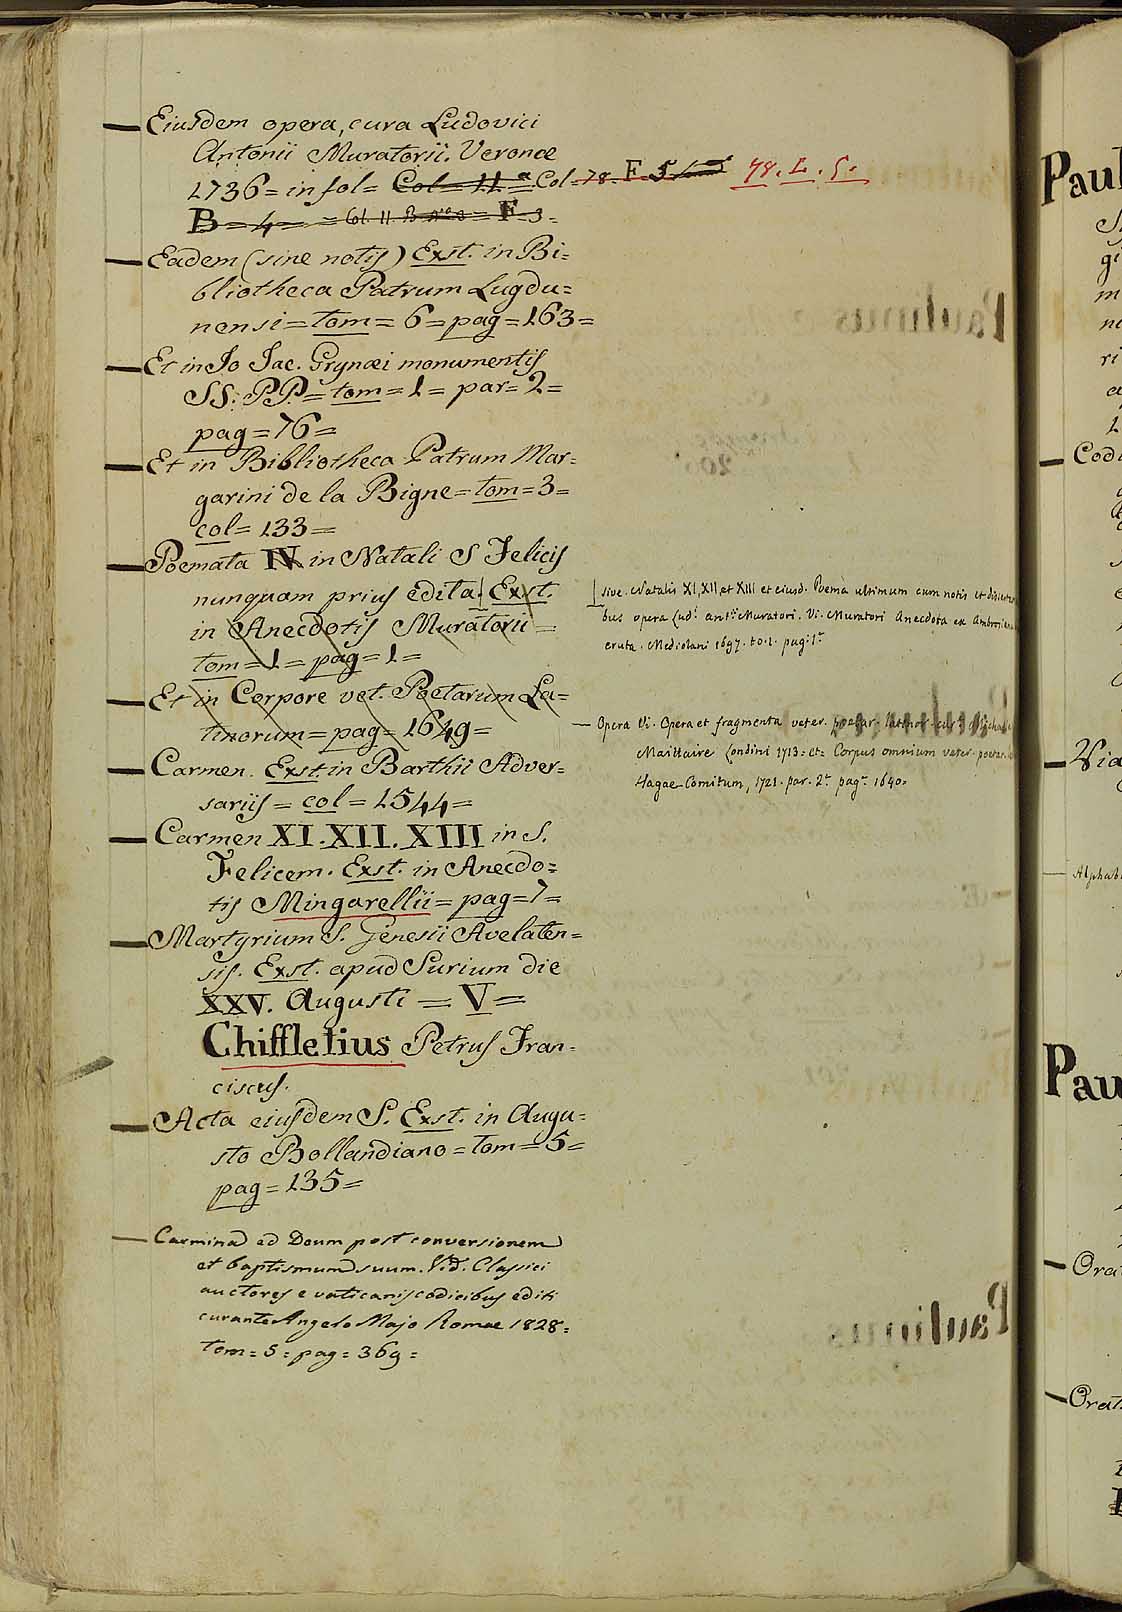 Eiusdem opera, cura Ludovici
Antonii Muratorii. Veronæ
1736= in fol= Col= 11.a= Col=78. F. 5 78. L. 5.
B= 4= = Col. 11. B = F. 3=
Eadem (sine notis) Exst. in Bi=
bliotheca Patrum Lugdu=
nensi= tom= 6= pag= 163=
Et in Jo Jac. Grynæi monumentis
SS. PP.= tom= 1= par= 2=
pag= 76=
Et in Bibliotheca Patrum Mar=
garini de la Bigne= tom= 3=
col= 133=
Poemata IV. in Natali S Felicis
nunquam prius edita. Exst.
in Anecdotis Muratorii=
tom= 1= pag= 1=
sive Natalis XI, XII, et XIII et eiusd. Poema ultimum cum notis et
bus opera Lud. ant. Muratori. Vi. Muratori Anecdota ex
eruta. Mediolani 1697. to. 1. pag. 1.
Et in Corpore vet. Poetarum La=
tinorum= pag= 1649=
Opera Vi. Opera et fragmenta veter. poetar.
Maittaire Londini 1713= et= Corpus omnium veter. poetar.
Hagae-Comitum, 1721. par. 2. pag. 1640.
Carmen. Exst. in Barthii Adver=
sariis= col= 1544=
Carmen XI. XII. XIII in S.
Felicem. Exst. in Anecdo=
tis Mingarellii= pag= 7=
Martyrium S. Genesii Avelaten=
sis. Exst. apud Surium die
XXV. Augusti = V=
Chiffletius Petrus Fran=
ciscus.
Acta eiusdem S. Exst. in Augu=
sto Bollandiano= tom= 5=
pag= 135=
Carmina ad Deum post conversionem
et baptismum suum. Vid. Classici
auctores e vaticanis codicibus editi
curante Angelo Majo Romae 1828=
tom= 5= pag= 369=